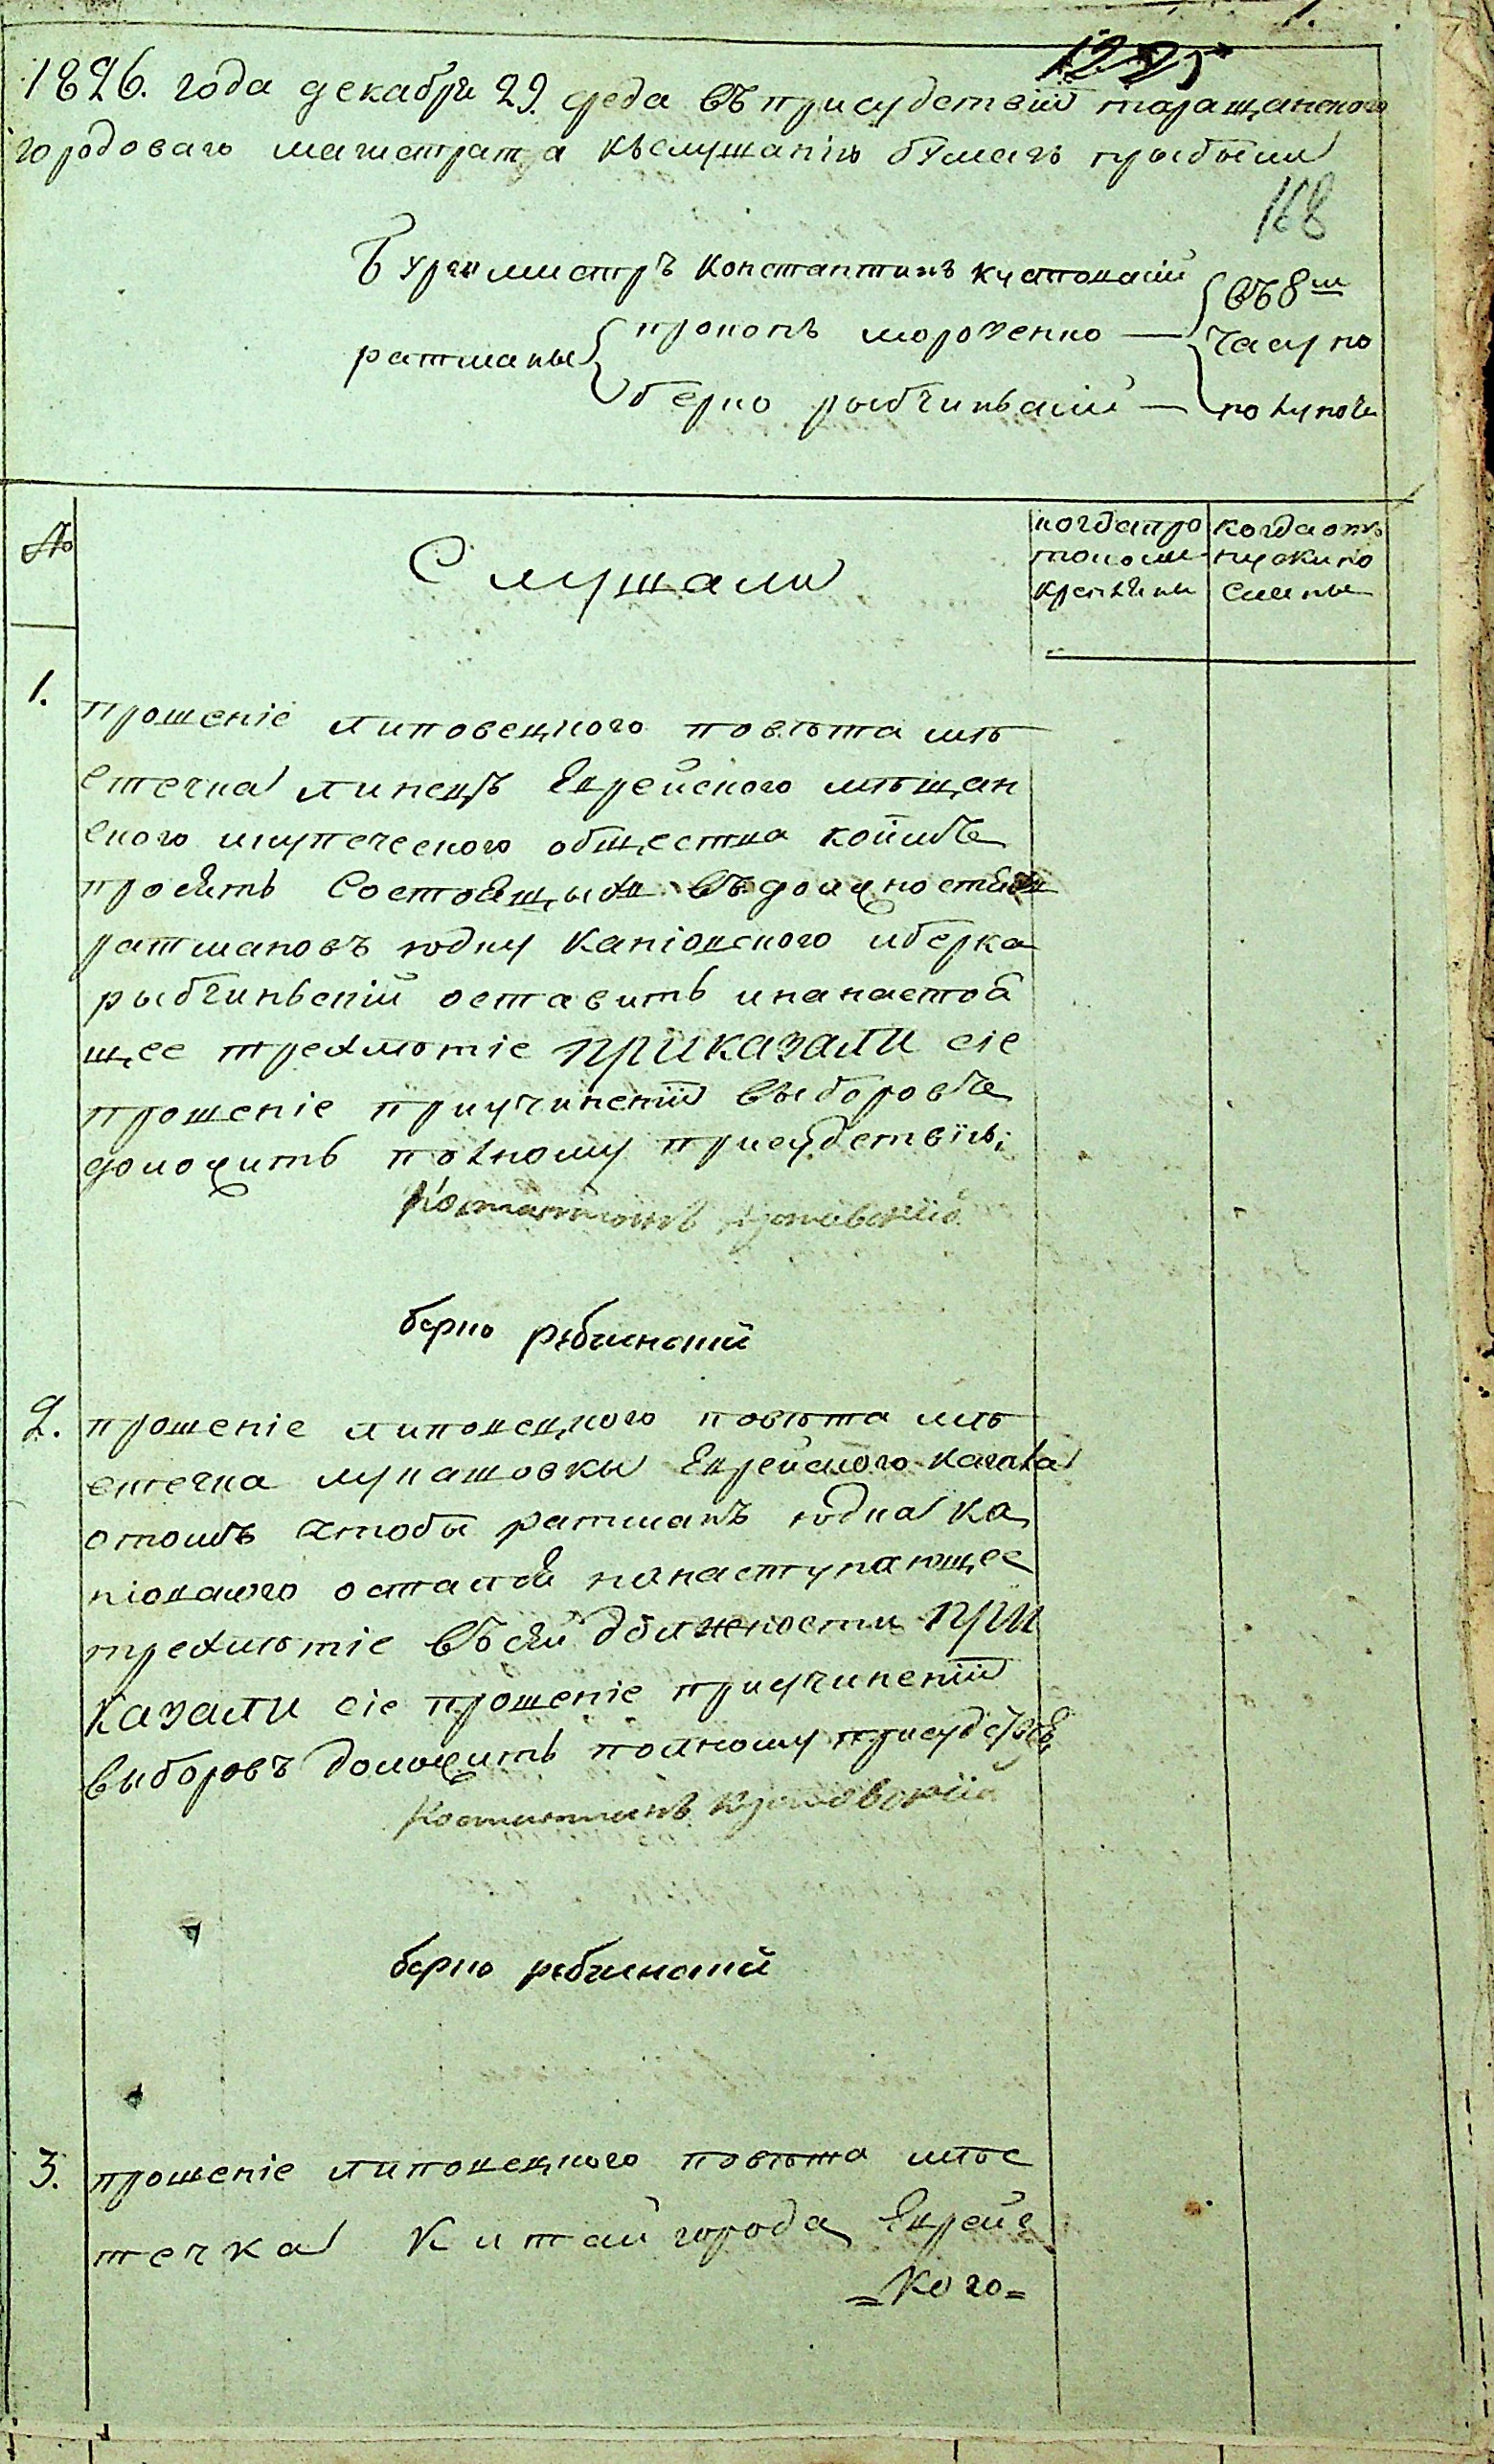 1826. года декабря 29. среда въ присудствіи таращанского
городоваго магистрата къ слушанію бумагъ прыбыли
168
Бургомистръ Константинъ кустовскій
ратманы прокопъ морозенко — въ 8м
часу по
берко рыбчиньскій — полуночи
№
Слушали
когда про
токолы
скреплены
когда отъ
пуски по
сланы
1.
прошеніе липовецкого повѣта мѣ
стечка линецъ Еврейского мѣщан
ского и купеческого общества коимъ
просятъ Состоящыхъ въ должностяхъ
ратмановъ юдку каніовского и берка
рыбчиньскій оставить и на настоя
щее трехлютіе приказали сіе
прошеніе при учиненіи выборовъ
доложить полному присудствію;
Костантинъ кустовскій
берко рѣбчинский
2.
прошеніе липовецкого повѣта мѣ
стечка лукашовки Еврейского кагала
о томъ чтобы ратманъ юдка ка
ніовского остался на наступающее
трехлютіе въ сей должности при
казали сіе прошеніе при учиненіи
выборовъ доложить полному присудствію
Костантинъ кустовскій
берко рѣбчинский
3.
прошеніе липовецкого повѣта мѣс
течка Китай города Еврейс
=кого=